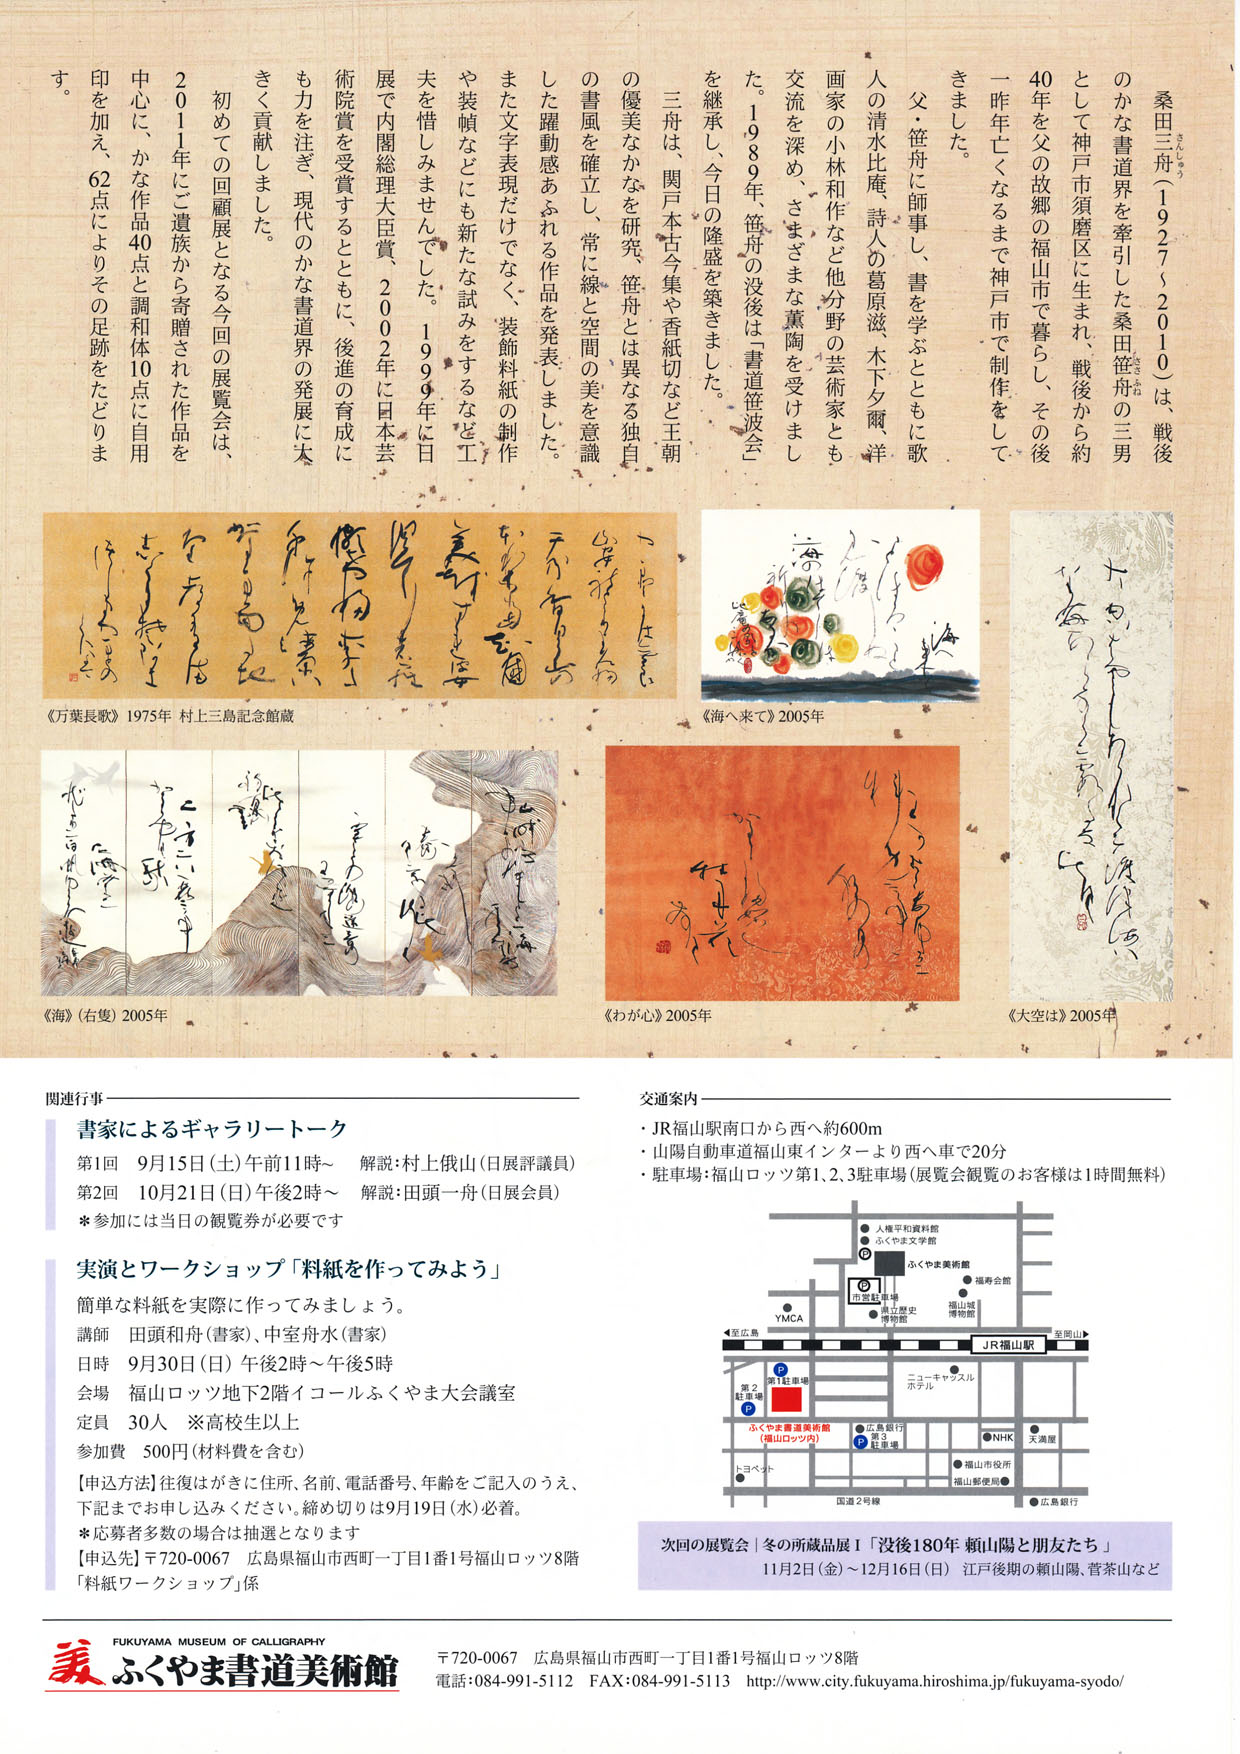 桑田三舟（1927〜2010）は、戦後
さんしゅう
のかな書道界を牽引した桑田笹舟の三男
ささふね
として神戸市須磨区に生まれ、戦後から約
40年を父の故郷の福山市で暮らし、その後
一昨年亡くなるまで神戸市で制作をして
きました。
父・笹舟に師事し、書を学ぶとともに歌
人の清水比庵、詩人の葛原滋、木下夕爾、洋
画家の小林和作など他分野の芸術家とも
交流を深め、さまざまな薫陶を受けまし
た。1989年、笹舟の没後は「書道笹波会」
を継承し、今日の隆盛を築きました。
三舟は、関戸本古今集や香紙切など王朝
の優美なかなを研究、笹舟とは異なる独自
の書風を確立し、常に線と空間の美を意識
した躍動感あふれる作品を発表しました。
また文字表現だけでなく、装飾料紙の制作
や装幀などにも新たな試みをするなど工
夫を惜しみませんでした。1999年に日
展で内閣総理大臣賞、2002年に日本芸
術院賞を受賞するとともに、後進の育成に
も力を注ぎ、現代のかな書道界の発展に大
きく貢献しました。
初めての回顧展となる今回の展覧会は、
2011年にご遺族から寄贈された作品を
中心に、かな作品40点と調和体10点に自用
印を加え、62点によりその足跡をたどりま
す。
《万葉長歌》1975年 村上三島記念館蔵
《海へ来て》2005年
《海》（右隻）2005年
《わが心》2005年
《大空は》2005年
関連行事
書家によるギャラリートーク
第1回 9月15日（土）午前11時〜 解説：村上俄山（日展評議員）
第2回 10月21日（日）午後2時〜 解説：田頭一舟（日展会員）
＊参加には当日の観覧券が必要です
実演とワークショップ「料紙を作ってみよう」
簡単な料紙を実際に作ってみましょう。
講師 田頭和舟（書家）、中室舟水（書家）
日時 9月30日（日） 午後2時〜午後5時
会場 福山ロッツ地下2階イコールふくやま大会議室
定員 30人 ※高校生以上
参加費 500円（材料費を含む）
【申込方法】往復はがきに住所、名前、電話番号、年齢をご記入のうえ、
下記までお申し込みください。締め切りは9月19日（水）必着。
＊応募者多数の場合は抽選となります
【申込先】〒720-0067 広島県福山市西町一丁目1番1号福山ロッツ8階
「料紙ワークショップ」係
交通案内
・JR福山駅南口から西へ約600m
・山陽自動車道福山東インターより西へ車で20分
・駐車場：福山ロッツ第1、2、3駐車場（展覧会観覧のお客様は1時間無料）
人権平和資料館
ふくやま文学館
P
ふくやま美術館
P
市営駐車場
福寿会館
福山城
博物館
県立歴史
博物館
YMCA
◀至広島
JR福山駅
至岡山▶
P
第1駐車場
第2
駐車場
P
ニューキャッスル
ホテル
ふくやま書道美術館
（福山ロッツ内）
広島銀行
P
第3
駐車場
NHK
天満屋
トヨペット
福山市役所
福山郵便局
国道2号線
広島銀行
次回の展覧会｜冬の所蔵品展Ⅰ「没後180年 頼山陽と朋友たち」
11月2日（金）〜12月16日（日） 江戸後期の頼山陽、菅茶山など
美
FUKUYAMA MUSEUM OF CALLIGRAPHY
ふくやま書道美術館
〒720-0067 広島県福山市西町一丁目1番1号福山ロッツ8階
電話：084-991-5112 FAX：084-991-5113 http://www.city.fukuyama.hiroshima.jp/fukuyama-syodo/